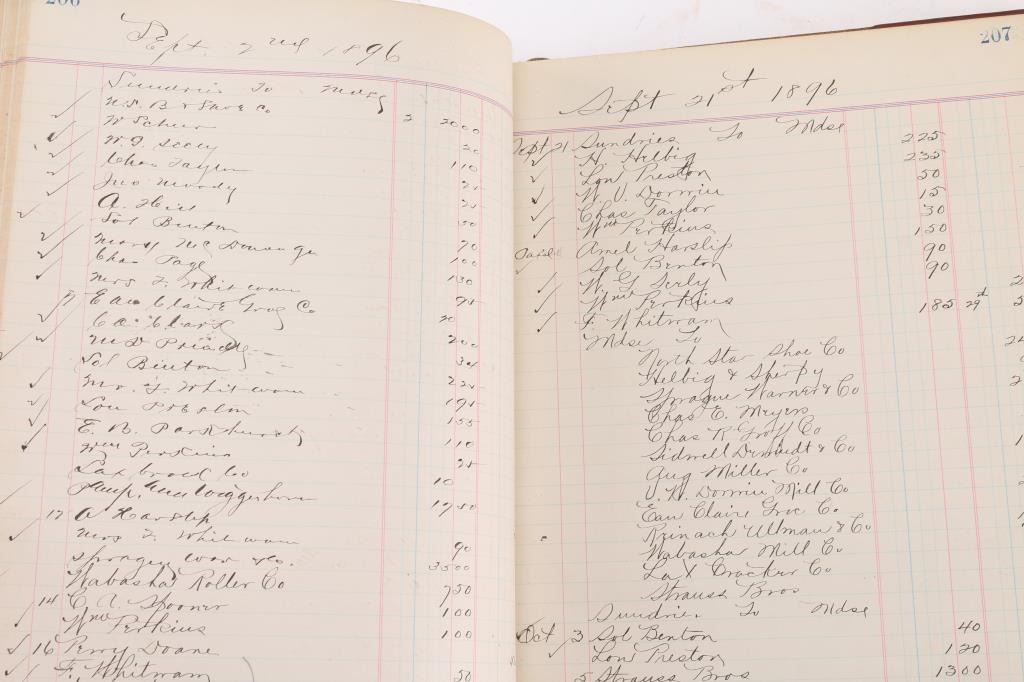 206
Sept. 2nd 1896
Sundries To Mdsg
N.S. B & Save Co 2 2000
W Scheer 20
W. G. Seely 110
Chas Taylor 25
Jno Moody 25
A. Heil 50
Sol Benton 70
Mary McDonough 100
Chas Page 130
Mrs F. Whitwam 95
9 Eau Claire Groc Co 20
C A Clark 200
M D 30
Sol Benton 225
Mrs. F. Whitwam 195
Lon Preston 155
E. B. Parkhurst 110
Wm Perkins 25
Lax 10
1950
12 A Harslip
Mrs F. Whitwam 90
3500
Wabasha Roller Co 750
14 C. A. Spooner 100
Wm Perkins 100
16 Perry Doane
F. Whitwam 50
207
Sept 21st 1896
Sept 21 Sundries To Mdse 225
H. Helbig 235
Lon Preston 50
W. V. Dorwin 15
Chas Taylor 30
Wm Perkins 150
Amel Harslip 90
Sol Benton 90
W. G. Serly
Wm Perkins 185 29th
F. Whitwam
Mdse To
North Star Shoe Co
Helbig &
Sprague Warner & Co
Chas E. Meyers
Chas R Groff Co
Sidwell & Co
Aug Miller Co
V. W. Dorwin Mill Co
Eau Claire Groc Co.
Krinach Ullman & Co
Wabasha Mill Co
La X Cracker Co
Strauss Bros
Sundries To Mdse
Oct 3 Sol Benton 40
Lon Preston 120
5 Strauss Bros 1300